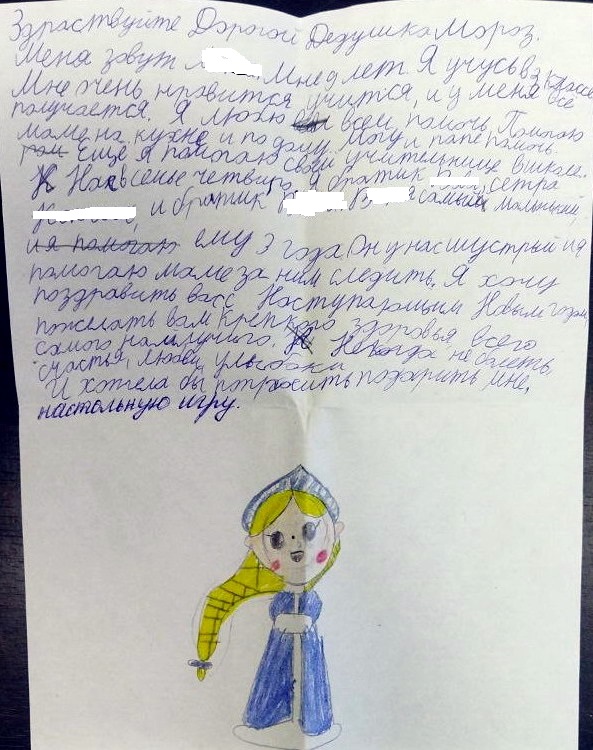 Здраствуйте Дорогой Дедушка Мороз.
Меня зовут Мне 9 лет. Я учусь в 3 классе
Мне очень нравится учится, и у меня все
получается. Я люблю всем помочь. Помогаю
маме на кухне и по дому. Могу и папе помочь.
Еще я помогаю своей учительнице в школе.
Нас в семье четвиро, я братик сетра
и братик самый маленький,
и я помогаю ему 3 года Он у нас шустрый и я
помогаю маме за ним следить. Я хочу
поздравить васс Наступающим Новым годом,
пожелать вам крепкого здоровья, всего
самого наилучшего. Некогда не болеть,
счастья, любви, улыбоки
И хотела бы попросить подарить мне,
настольную игру.